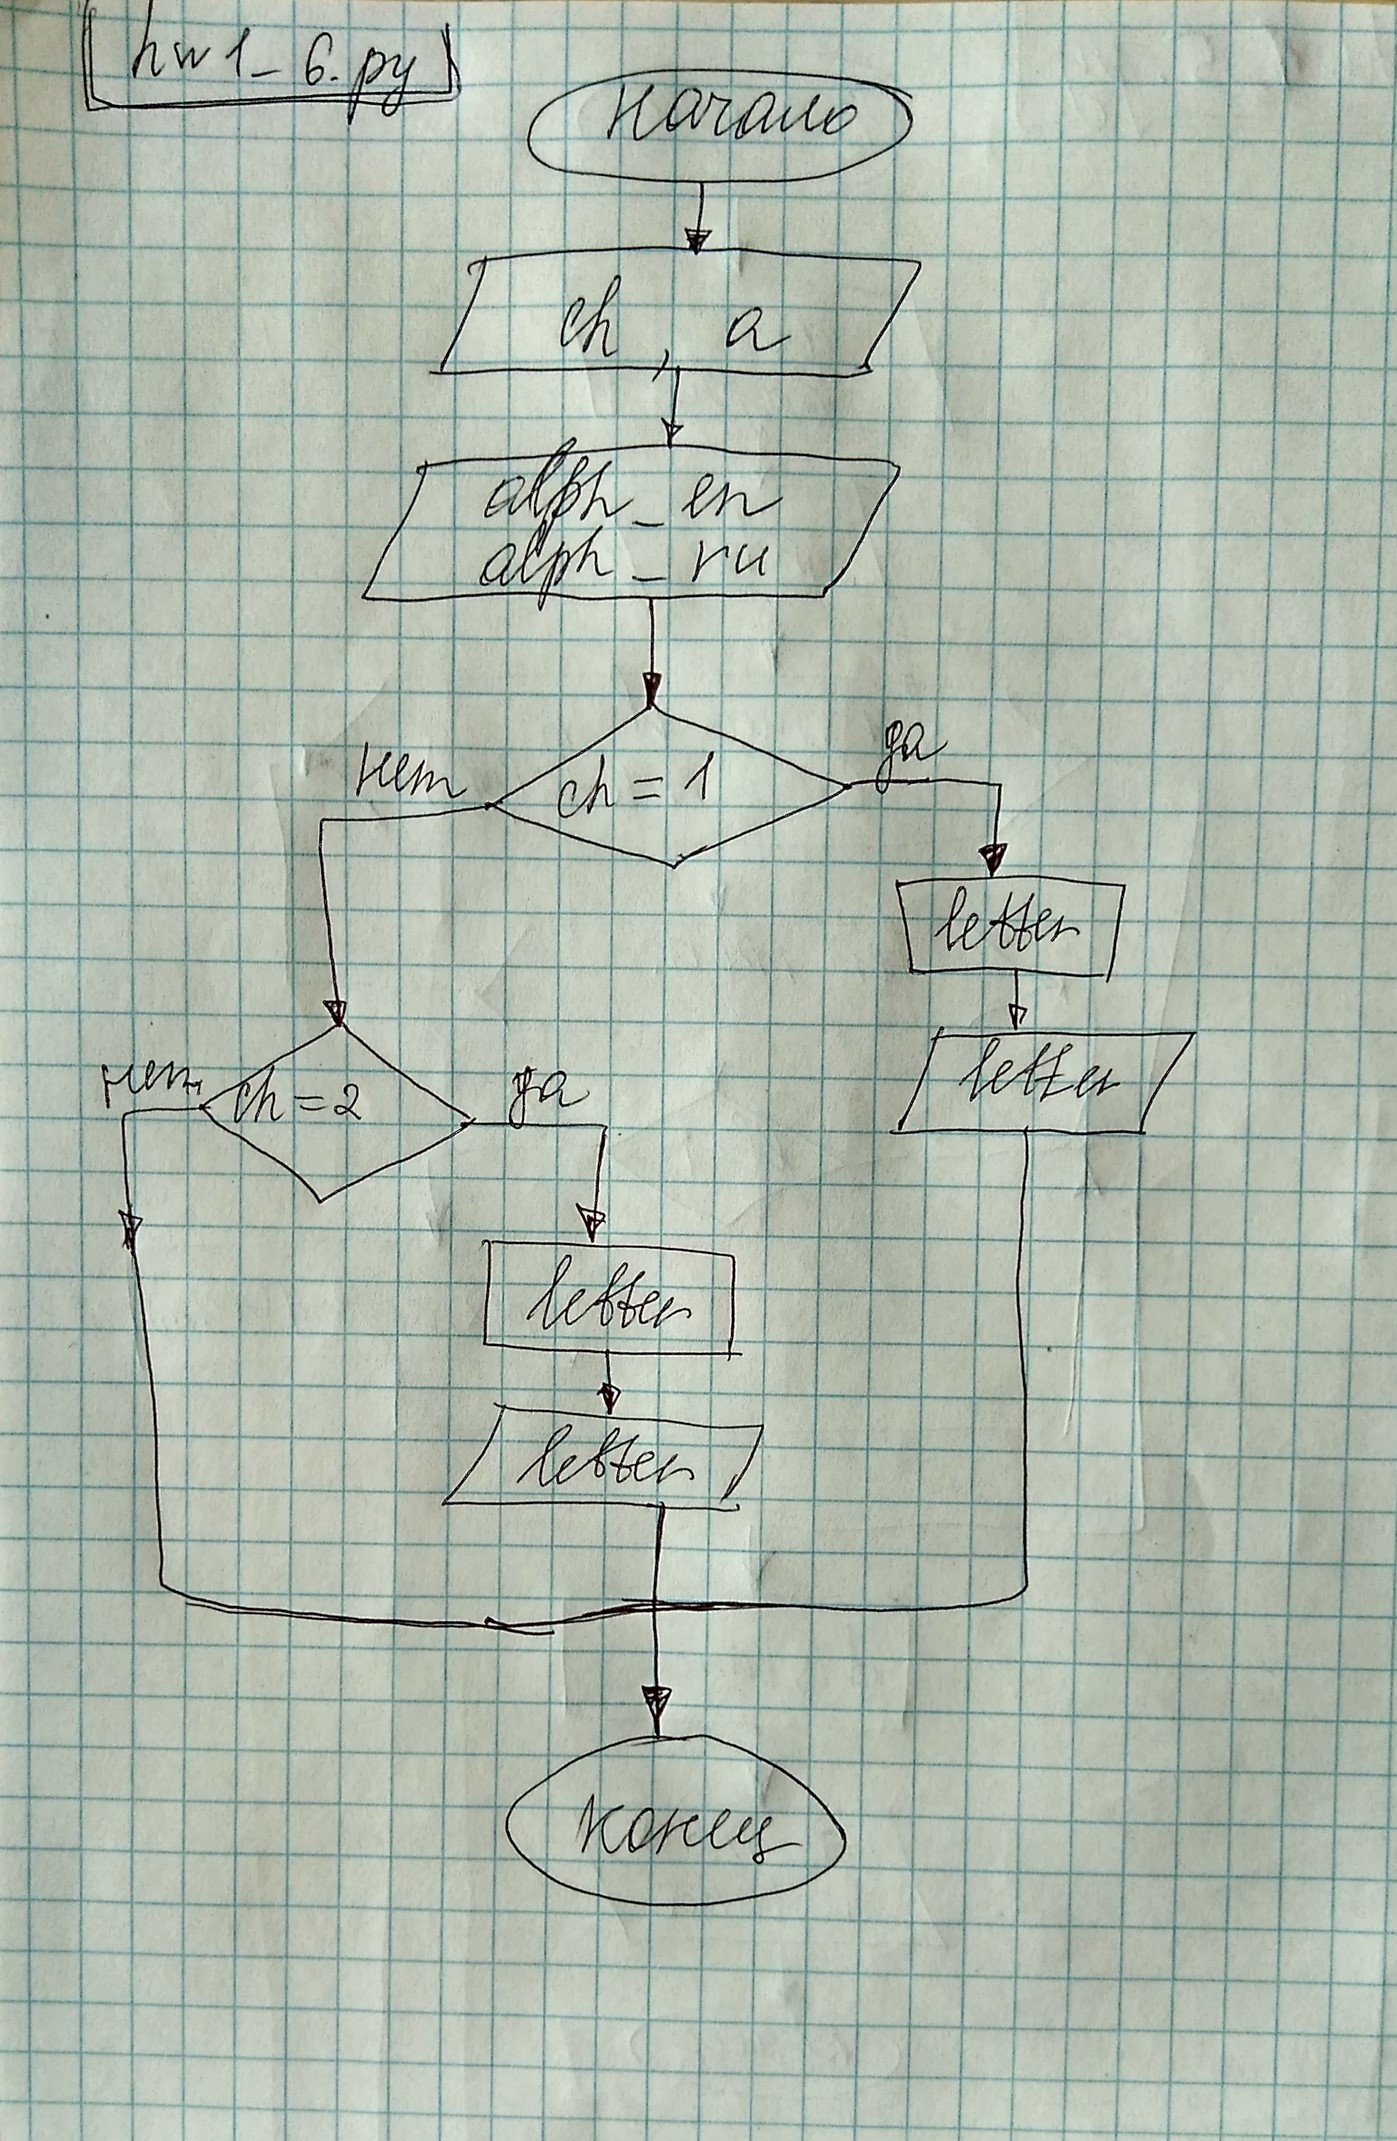 hw1_6.py
начало
ch, a
alph_en
alph_ru
ch = 1
нет
да
letter
letter
ch = 2
нет
да
letter
letter
конец